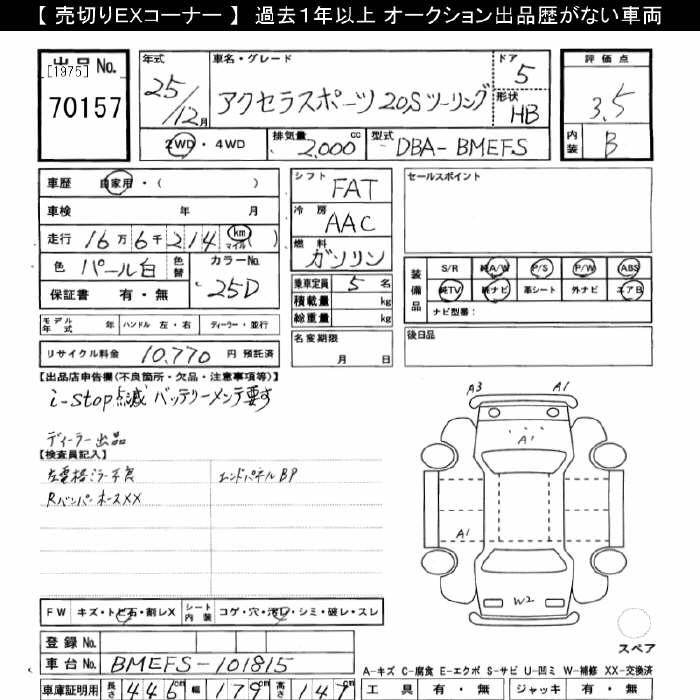 【 売切りEXコーナー 】 過去1年以上 オークション出品歴がない車両
出品No.
[1975]
70157
年式
25/12月
車名・グレード
アクセラスポーツ 20Sツーリング
ドア
5
形状
HB
2WD・4WD
排気量
2,000 cc
型式
DBA-BMEFS
評価点
3.5
内装
B
車歴 自家用・( )
車検 年 月
走行 16万6千214 km マイル ( )
色 パール白 色替
カラーNo. 25D
保証書 有・無
シフト FAT
冷房 AAC
燃料 ガソリン
乗車定員 5 名
積載量 kg
総重量 kg
セールスポイント
装備品
S/R 純A/W P/S P/W ABS
純TV 純ナビ 革シート 外ナビ エアB
ナビ型番:
モデル年式 年 ハンドル 左・右 ディーラー・並行
リサイクル料金 10,770 円 預託済
名変期限 月 日
後日品
【出品店申告欄(不良箇所・欠品・注意事項等)】
i-stop点滅 バッテリーメンテ要す
ディーラー出品
【検査員記入】
左電格ミラー不良
エンドパネルBP
RバンパーホースXX
A3 A1
A1
A1
W2
スペア
FW キズ・トビ石・割レX
シート内装 コゲ・穴・汚レ・シミ・破レ・スレ
登録No.
車台No. BMEFS-101815
A-キズ C-腐食 E-エクボ S-サビ U-凹ミ W-補修 XX-交換済
車庫証明用 長さ 446cm 幅 179cm 高さ 147cm
工具 有・無 ジャッキ 有・無